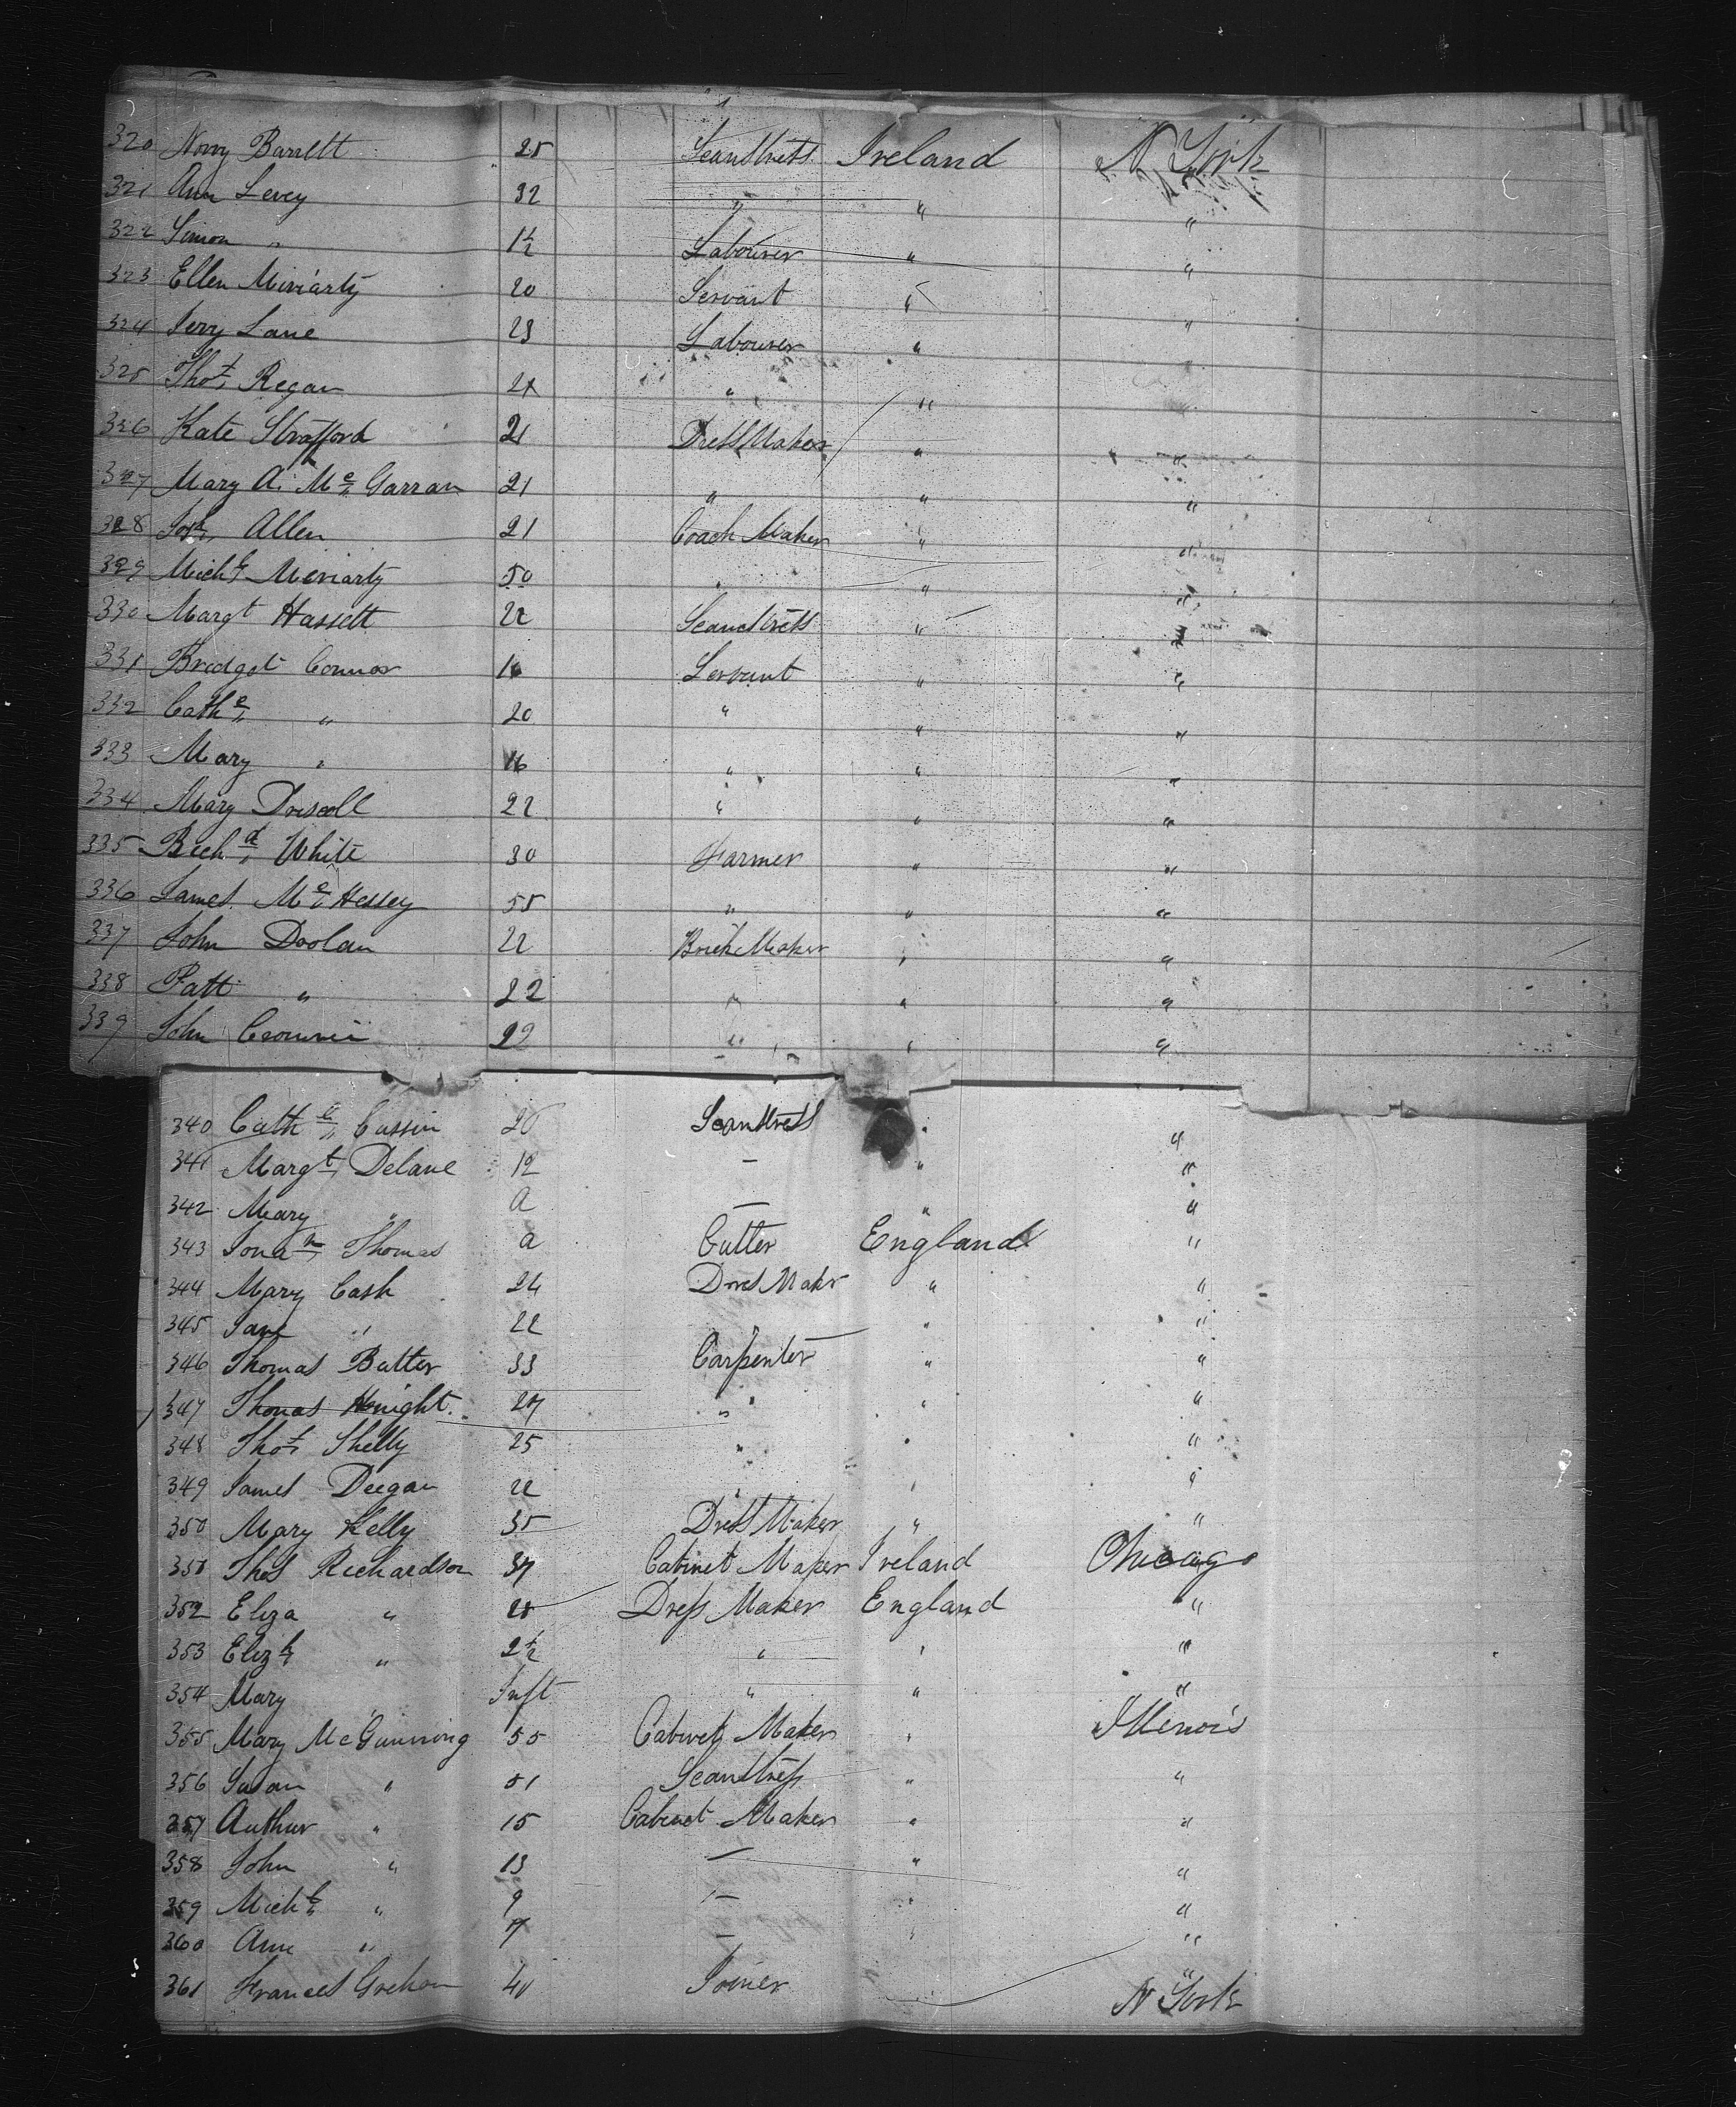 320 Norry Barrett 25 Seamstress Ireland N York
321 Ann Levey 32 " " "
322 Simon " 1½ Labourer " "
323 Ellen Miriarty 20 Servant " "
324 Jerry Lane 23 Labourer " "
325 Thos Regan " " "
326 Kate Strafford 21 Dress Maker " "
327 Mary A. Mc Garran 21 " " "
328 Josh Allen 21 Coach Maker " "
329 Michl Moriarty 50 " " "
330 Margt Hassett 22 Seamstress " "
331 Bridget Connor 16 Servant " "
332 Cathe " 20 " " "
333 Mary " 16 " " "
334 Mary Driscoll 22 " " "
335 Richd White 30 Farmer " "
336 James Mc Hessey 55 " " "
337 John Doolan 22 Brick Maker " "
338 Patt " 22 " " "
339 John 22 " " "
340 Cathe Cassin 20 Seamstress " "
341 Margt Delane 12 – " "
342 Mary " a – " "
343 Jonan Thomas a Cutter England "
344 Mary Cash 24 Dress Maker " "
345 Jane " 22 " " "
346 Thomas Butter 33 Carpenter " "
347 Thomas Knight 27 " " "
348 Thos Shelly 25 " " "
349 James Deegan 22 " " "
350 Mary Kelly 35 Dress Maker " "
351 Thos Richardson 37 Cabinet Maker Ireland Chicago
352 Eliza " 28 Dress Maker England "
353 Elizh " 2½ " " "
354 Mary Inft " " "
355 Mary McGunning 55 Cabinet Maker " Illenois
356 Susan " 51 Seamstress " "
357 Authur " 15 Cabinet Maker " "
358 John " 13 – " "
359 Michl " 9 – " "
360 Ann " 7 – " "
361 Frances Greham 40 Joiner " N York